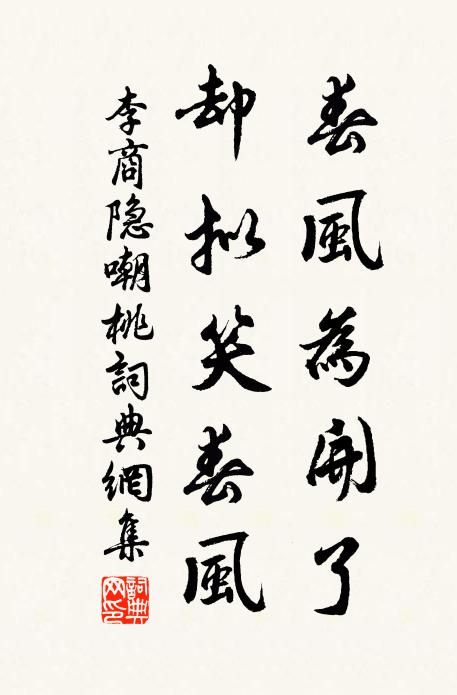 春風為開了
却拟笑春風
李商隐嘲桃詞典網集
詞典網印